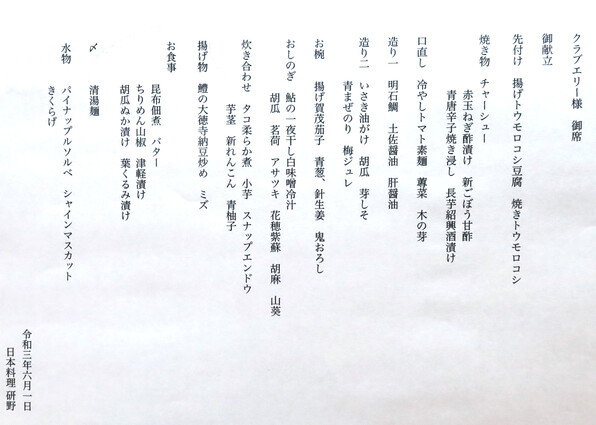 クラブエリー様　御席
御献立
先付け　揚げトウモロコシ豆腐　焼きトウモロコシ
焼き物　チャーシュー
赤玉ねぎ酢漬け　新ごぼう甘酢
青唐辛子焼き浸し　長芋紹興酒漬け
口直し　冷やしトマト素麺　蓴菜　木の芽
造り一　明石鯛　土佐醤油　肝醤油
造り二　いさき油がけ　胡瓜　芽しそ
青まぜのり　梅ジュレ
お椀　揚げ賀茂茄子　青葱、針生姜　鬼おろし
おしのぎ　鮎の一夜干し白味噌冷汁
胡瓜　茗荷　アサツキ　花穂紫蘇　胡麻　山葵
炊き合わせ　タコ柔らか煮　小芋　スナップエンドウ
芋茎　新れんこん　青柚子
揚げ物　鱧の大徳寺納豆炒め　ミズ
お食事
昆布佃煮　バター
ちりめん山椒　津軽漬け
胡瓜ぬか漬け　葉くるみ漬け
〆　清湯麺
水物　パイナップルソルベ　シャインマスカット
きくらげ
令和三年六月一日
日本料理 研野